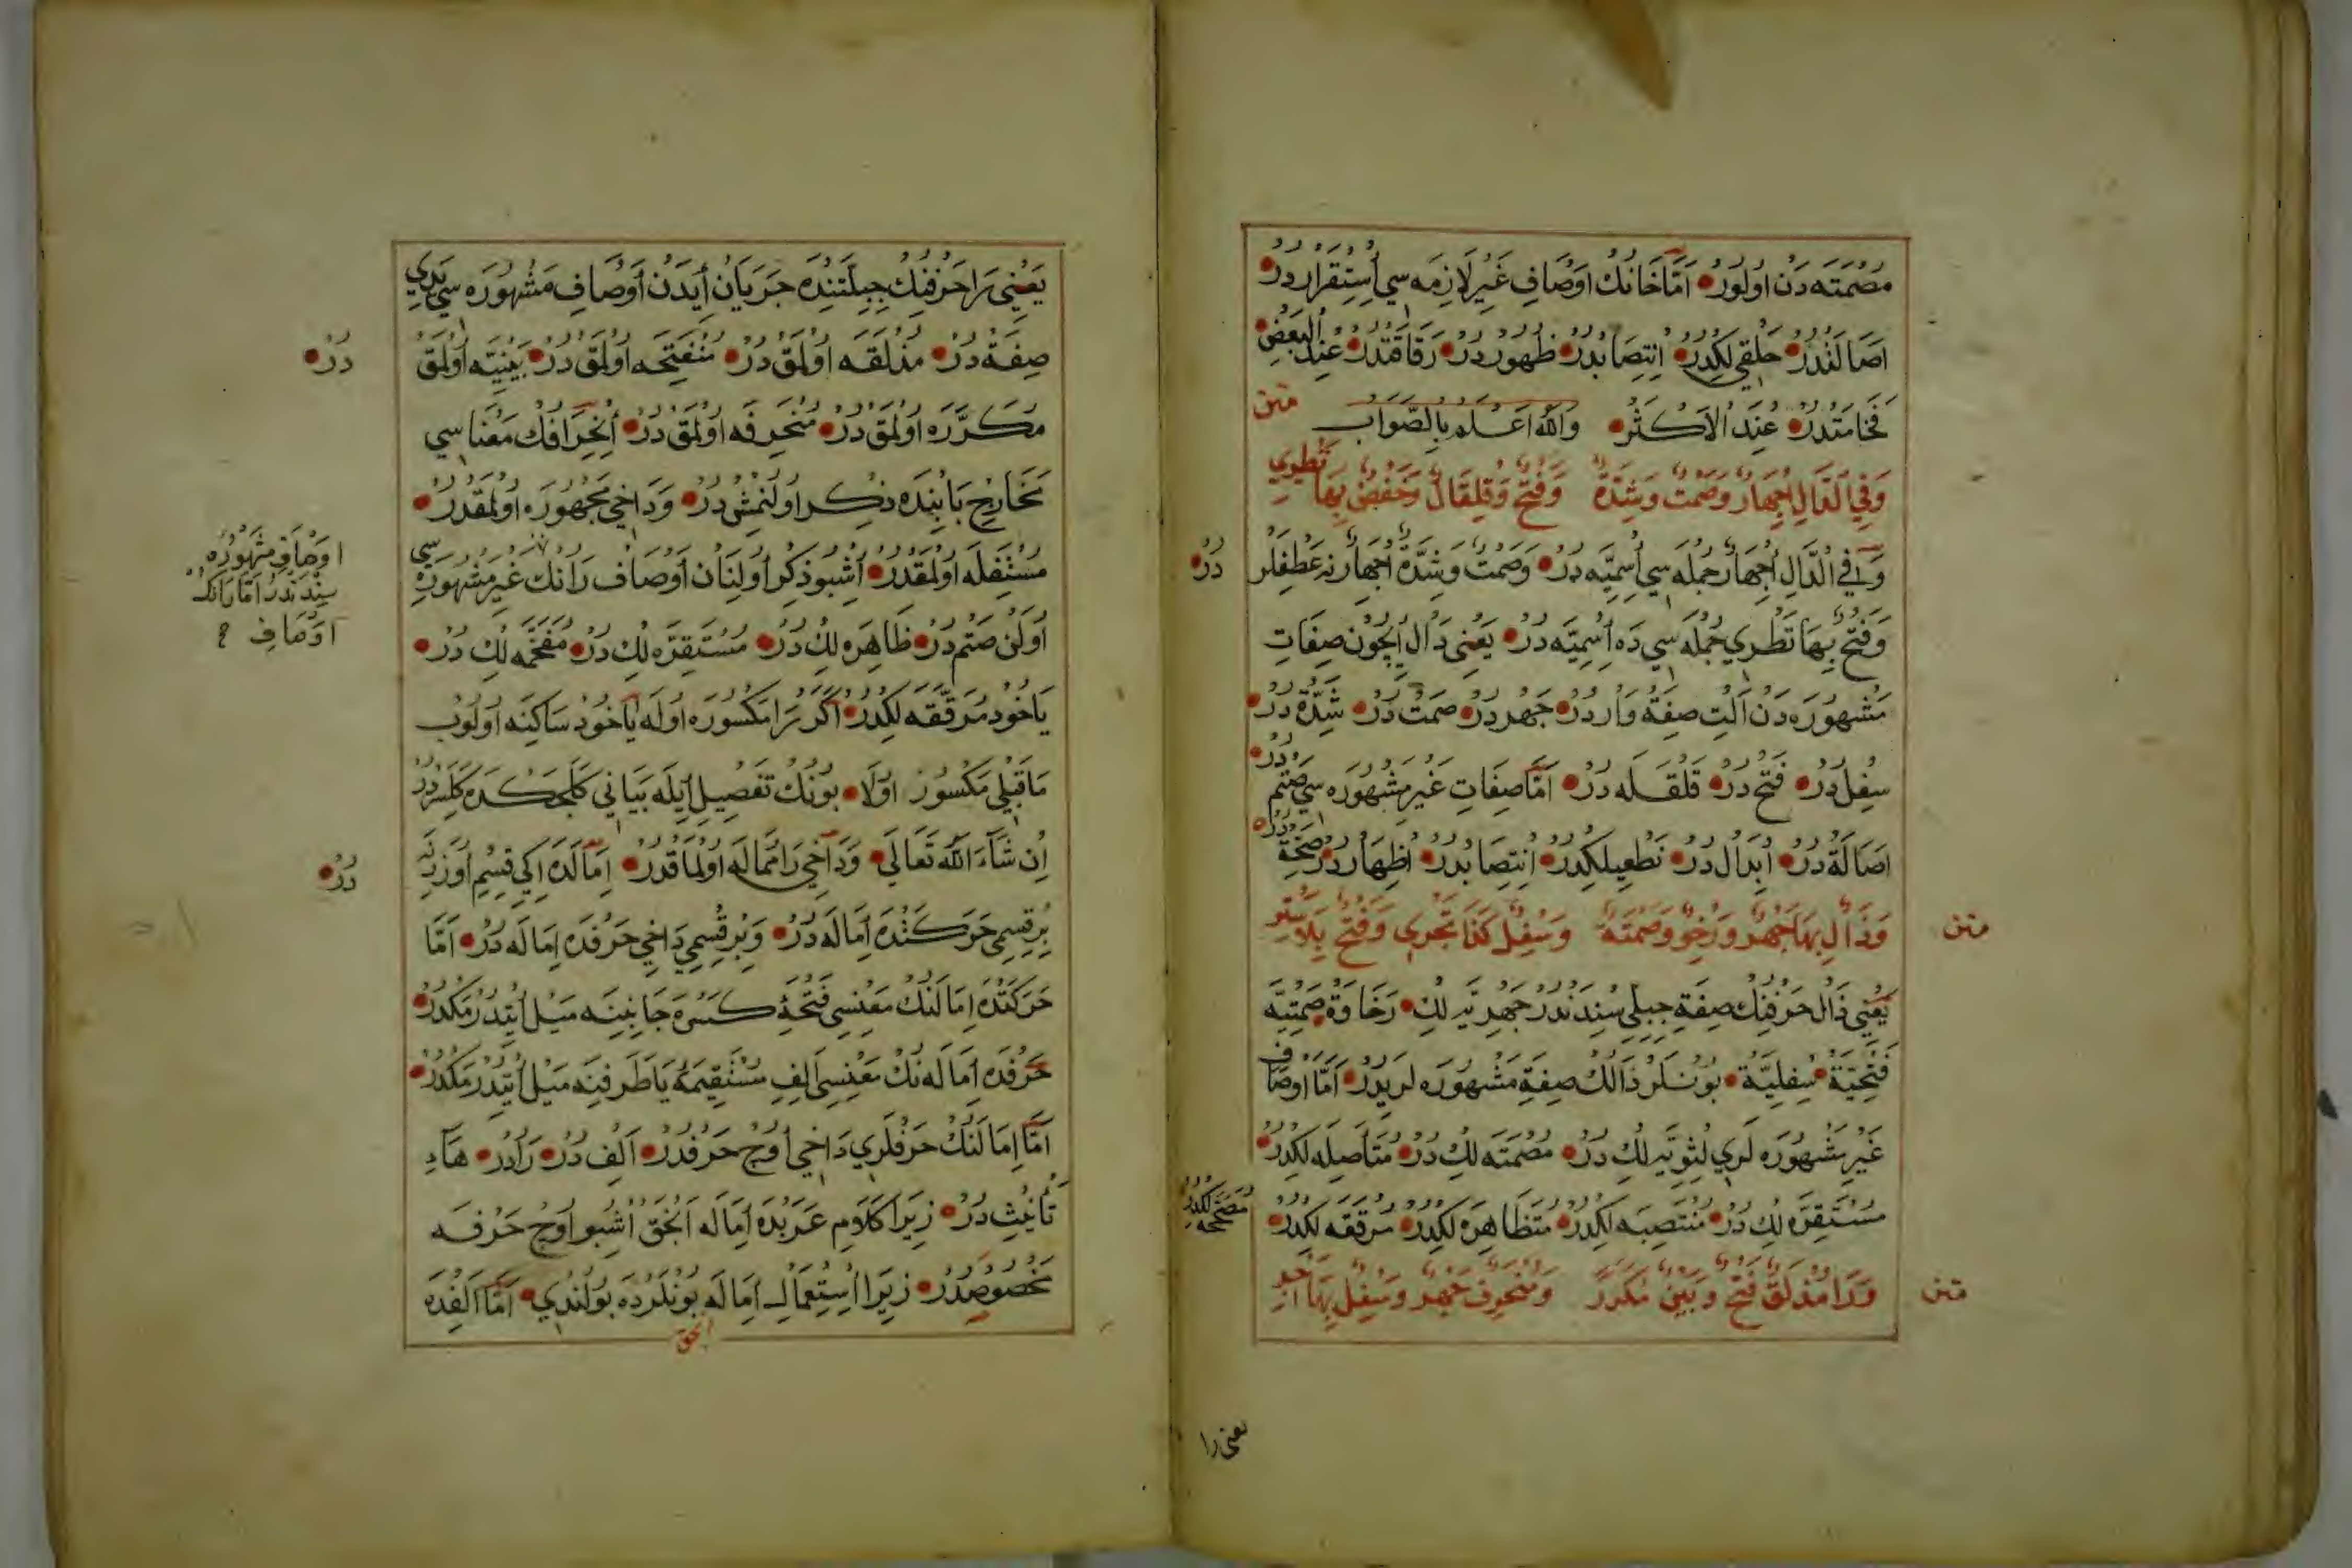 مُصْمَتَه دَنْ اولُورْ اَمَّا خَانِكْ اَوْصَافِ غَيْرِ لَازِمَه سِي اُسْتِقْرَاردُرْ
اَصَالَتْدُرْ حَلْقِي لِكْدُرْ اِنْتِصَابْدُرْ ظُهُورْدُرْ رَقَاقَتْدُرْ عِنْدَ الْبَعْضِ
فَخَامَتْدُرْ عِنْدَ الْاَكْثَرْ وَاللهُ اَعْلَمُ بِالصَّوَابِ
متن
وَفِي الدَّالِ اِجْهَارٌ وَصَمْتٌ وَشِدَّةٌ وَفَتْحٌ وَقِلْقَالٌ وَخَفْضٌ بِهَا تَطْرِي
وَفِي الدَّالِ اِجْهَارٌ جُمْلَه سِي اِسْمِيَّه دُرْ وَصَمْتٌ وَشِدَّةٌ اِجْهَارْ نِه عَطِفْلَر
دُرْ
وَفَتْحٌ بِهَا تَطْرِي جُمْلَه سِي دَه اِسْمِيَّه دُرْ يَعْنِي دَالْ اِيچُونْ صِفَاتِ
مَشْهُورَه دَنْ اَلْتِ صِفَةْ وَاردُرْ جَهْردُرْ صَمْتْ دُرْ شِدَّةْ دُرْ
سُفِلْ دُرْ فَتْحْ دُرْ قَلْقَلَه دُرْ اَمَّا صِفَاتِ غَيْرِ مَشْهُورَه سِي صَتْم
دُرْ
اَصَالَةْ دُرْ اِبْدَالْ دُرْ نَطْعِيلِكْدُرْ اِنْتِصَابْدُرْ اِظْهَاردُرْ صَحَّةْ
دُرْ
وَذَالٍ بِهَا جَهْرٌ وَرَخْوٌ وَصَمْتَةٌ وَسُفْلٌ كَذَا تَجْرِي وَفَتْحٌ بِلَا سَتْرِ
متن
يَعْنِي ذَالْ حَرْفِنِكْ صِفَةِ جِبِلِّي سِنْدَنْدُرْ جَهْرِيَّه لِكْ رَخَاوَةْ صَمْتِيَّه
فَتْحِيَّةْ سُفْلِيَّةْ بُونْلَرْ ذَالِكْ صِفَةِ مَشْهُورَه لَرِيدُرْ اَمَّا اَوْصَافِ
غَيْرِ مَشْهُورَه لَرِي لِثَوِيَّه لِكْ دُرْ مُصْمَتَه لِكْ دُرْ مُتَأَصِلَه لِكْدُرْ
مُسْتَقِرَّه لِكْ دُرْ مُنْتَصِبَه لِكْدُرْ مُتَظَاهِرَه لِكْدُرْ مُرَقَّقَه لِكْدُرْ
مُصَحَّحَه لِكْدُرْ
وَرَا مُذْلَقٌ فَتْحٌ وَبَيْنٌ مُكَرَّرٌ وَمُنْحَرِفٌ جَهْرٌ وَسُفْلٌ بِهَا
متن
يعنى را
يَعْنِي رَا حَرْفِنِكْ جِبِلَّتِنْدَه جَرَيَانْ اِيدَنْ اَوْصَافِ مَشْهُورَه سِي يَدِي
صِفَةْ دُرْ مُذْلَقَه اولْمَقْ دُرْ مُنْفَتِحَه اولْمَقْ دُرْ بَيْنِيَّه اولْمَقْ
دُرْ
مُكَرَّرَه اولْمَقْ دُرْ مُنْحَرِفَه اولْمَقْ دُرْ اِنْحِرَافِكْ مَعْنَاسِي
مَخَارِجْ بَابِنْدَه ذِكِرْ اولُنْمِشْ دُرْ وَدَاخِي مَجْهُورَه اولْمَقْدُرْ
مُسْتَفِلَه اولْمَقْدُرْ اُشْبُو ذِكِرْ اولِنَانْ اَوْصَافْ رَانِكْ غَيْرِ مَشْهُورَه سِي
اوصافِ مشهوره
سِنْدَنْدُرْ اَمَّا رَانِكْ
اَوْصَافِ
اولَنْ صَتْم دُرْ ظَاهِرَه لِكْ دُرْ مُسْتَقِرَّه لِكْ دُرْ مُفَخَّمَه لِكْ دُرْ
يَاخُودْ مُرَقَّقَه لِكْدُرْ اَكَرْ رَا مَكْسُورَه اولَه يَاخُودْ سَاكِنَه اولُوبْ
مَا قَبْلِي مَكْسُورْ اولَا بُونِكْ تَفْصِيلْ اِيلَه بَيَانِي كَلَجَكْدَه كَلِسَردُرْ
اِنْ شَاءَ اللهُ تَعَالَي وَدَاخِي رَا مُمَالَه اولْمَاقْدُرْ اِمَالَه اِكِي قِسِمْ اُوزَرِنَه
دُرْ
بِرْ قِسْمِي حَرَكَتْدَه اِمَالَه دُرْ وَبِرْ قِسْمِي دَاخِي حَرْفْدَه اِمَالَه دُرْ اَمَّا
حَرَكَتْدَه اِمَالَنِكْ مَعْنِسِي فَتْحَةْ كَسْرَه جَانِبِنَه مَيْلْ اِتْدُرْمَكْدُرْ
حَرْفْدَه اِمَالَه نِكْ مَعْنِسِي اَلِفِ مُسْتَقِيمَةُ يَا طَرَفِنَه مَيْلْ اِتْدُرْمَكْدُرْ
اَمَّا اِمَالَنِكْ حَرْفْلَرِي دَاخِي اُوچْ حَرْفْدُرْ اَلِفْ دُرْ رَادُرْ هَاءِ
تَأْنِيثْ دُرْ زِيرَا كَلَامِ عَرَبْدَه اِمَالَه اَنْجَقْ اُشْبُو اُوچْ حَرْفَه
مَخْصُوصْدُرْ زِيرَا اِسْتِعْمَالِ اِمَالَه بُونْلَرْدَه بُولُنْدِي اَمَّا اَلِفْدَه